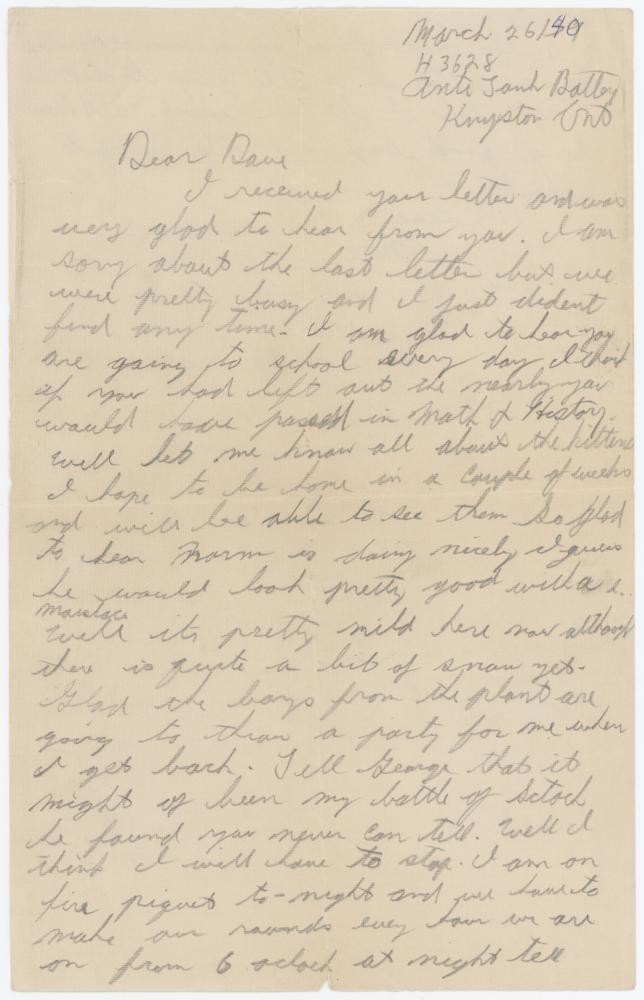 March 26/40
H3628
Anti Tank Battery
Kingston Ont
Dear Dave
I received your letter and was
very glad to hear from you. I am
sory about the last letter but we
were pretty busy and I just dident
find any time. I am glad to hear you
are going to school every day I think
if you had left out the nearly you
would have passed in Math & History.
Well let me know all about the kittens
I hope to be home in a couple of weeks
and will be able to see them. So glad
to hear Norm is doing nicely I guess
he would look pretty good with a
moustace
Well its pretty mild here now although
there is quite a bit of snow yet.
Glad the boys from the plant are
going to thraw a party for me when
I get back. Tell George that it
might of been my bottle of Sctoch
he found you never can tell. Well I
think I will have to stop. I am on
fire piquet to-night and we have to
make our rounds every hour we are
on from 6 oclock at night tell